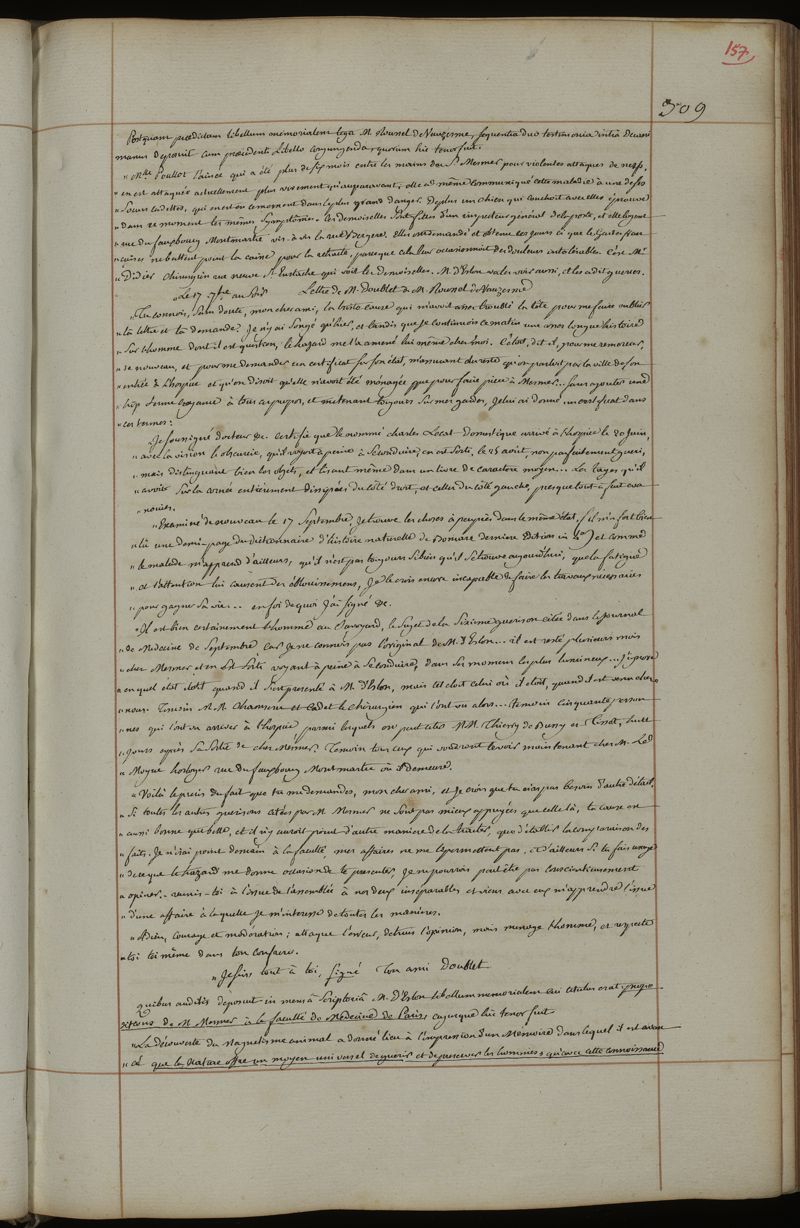 157
509
Postquam praedictum libellum memorialem legit M. Roussel de Vauzesme, sequentia duo testimonia intra Decani
manus deposuit cum praecedenti Libello conjungenda, quorum hic tenor fuit.
" Mlle Poullot l'ainée qui a été plus de six mois entre les mains du Sr. Mesmer pour violentes attaques de nerfs,
" en est attaquée actuellement plus vivement qu'auparavant, elle a même communiqué cette maladie à une de ses
" soeurs cadettes, qui en est en ce moment dans le plus grand danger. De plus un chien qui couchoit avec elles éprouve
" dans ce moment les mêmes symptômes. Ces demoiselles sont filles d'un inspecteur général de la poste, et elles logent
" rue du fauxbourg Montmartre vis-à-vis la rue Bergere. Elles ont demandé et obtenu ces jours ci que le Gardes fran
" çaises ne battent point la caisse pour la retraite, parceque cela leur occasionnoit des douleurs intolérables. C'est Mr.
" Didier chirurgien rue neuve St. Eustache qui voit les Demoiselles. M. D'Eslon va les voir aussi, et les a dit gueries.
" Le 17 7bre au soir Lettre de M. Doublet à M. Roussel de Vauzesme
" Tu connois, sans doute, mon cher ami, la triste cause qui m'avoit assez troublé la tête pour me faire oublier
" ta lettre et ta demande? Je n'y ai songé qu'hier, et tandis que je continuois ce matin une assez longue histoire
" sur l'homme dont il est question, le hazard me l'a amené lui même chez moi. C'étoit, dit il, pour me remercier,
" de nouveau, et pour me demander un certificat sur son état, m'assurant du reste qu'on parloit par la ville de son
" entrée à l'hospice et qu'on disoit qu'elle n'avoit été ménagée que pour faire piece à Mesmer... Sans ajouter une
" trop ferme croyance à tous ces propos, et me tenant toujours sur mes gardes, je lui ai donné un certificat dans
" ces termes:
" Je soussigné docteur &c. certifie que le nommé charles Locat domestique arrivé à l'hospice le 20 juin,
" avec la vision si obscurcie, qu'il voyoit à peine à se conduire, en est sorti, le 25 août, non parfaitement gueri,
" mais distinguant bien les objets, et lisant même dans un livre de caractere moyen... Les tayes qu'il
" avoit sur la cornée entièrement dissipées du côté droit, et celles du côté gauche, presque tout à fait éva
" nouies.
" Examiné de nouveau le 17 Septembre, je trouve les choses à peu près dans le même état, (il m'a fort bien
" lu une demi page du dictionnaire d'histoire naturelle de Bomare derniere Edition in 4o) et comme
" le malade m'apprend d'ailleurs, qu'il n'est pas toujours si bien qu'il se trouve aujourd'hui, que la fatigue
" et l'attention lui causent des éblouissemens, je le crois encore incapable de faire les travaux necessaires
" pour gagner sa vie... en foi de quoi j'ai signé &c.
" Il est bien certainement l'homme au Savoyard, le sujet de la sixieme guerison citée dans le journal
" de Médecine de Septembre car je ne connois pas l'original de M. D'Eslon... il est resté plusieurs mois
" chez Mesmer et en est sorti voyant à peine à se conduire, dans ses momens les plus lumineux... J'ignore
" en quel état étoit quand il s'est présenté à M. D'Eslon, mais cet étoit celui où il étoit, quand il est venu chez
" nous. Temoin MM. Chamseru et Cadet le chirurgien qui l'ont vu alors... Temoin cinquante person
" nes qui l'ont vu arriver à l'hospice parmi lesquels on peut citer MM. Thierry de Bussy et Tissot, huit
" jours après sa sortie de chez Mesmer. Temoin tous ceux qui voudront le voir maintenant chez M. Le
" Moyne horloger rue du fauxbourg Montmartre où il demeure.
" Voilà le précis du fait que tu me demandes, mon cher ami, et je crois que tu n'as pas besoin d'autre détail.
" Si toutes les autres guerisons citées par M. Mesmer ne sont pas mieux appuyées que celle là, ta cause est
" aussi bonne que belle, et il n'y auroit point d'autre maniere de la traiter, que d'établir la comparaison des
" faits. Je n'irai point demain à la faculté, mes affaires ne me le permettent pas. D'ailleurs si tu fais usage
" de ce que le hazard me donne occasion de te presenter, je ne pourrois peut être pas consciencieusement
" opiner... reunis-toi à l'issue de l'assemblée à nos deux inséparables et viens avec eux m'apprendre l'issue
" d'une affaire à laquelle je m'interesse de toutes les manieres.
" Adieu, courage et moderation; attaque l'erreur, détruis l'opinion, mais menage l'homme, et respecte
" toi toi même dans ton confrere.
" Je suis tout à toi, signé Ton ami Doublet
Quibus auditis deposuit in mensâ scriptoriâ M. D'Eslon libellum memorialem cui titulus erat propo
sitions de M. Mesmer à la faculté de Médecine de Paris cujusque hic tenor fuit
" La découverte du Magnetisme animal a donné lieu à l'impression d'un Memoire dans lequel il est avan
" cé que la Nature offre un moyen universel de guerir et de preserver les hommes; qu'avec cette connoissance